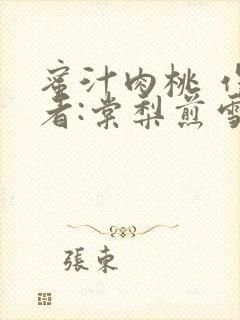 蜜汁肉桃 作
者:棠梨煎雪
張束